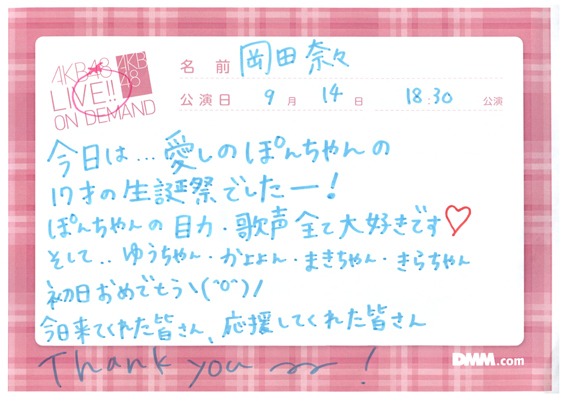 AKB48
LIVE!!
ON DEMAND
AKB
48
名 前 岡田奈々
公演日 9 月 14 日 18:30 公演
今日は…愛しのぽんちゃんの
17才の生誕祭でしたー!
ぽんちゃんの目力・歌声全て大好きです♡
そして‥ゆうちゃん・かよよん・まきちゃん・きらちゃん
初日おめでもうヽ(^o^)ノ
今日来てくれた皆さん、応援してくれた皆さん
Thank you !
DMM.com